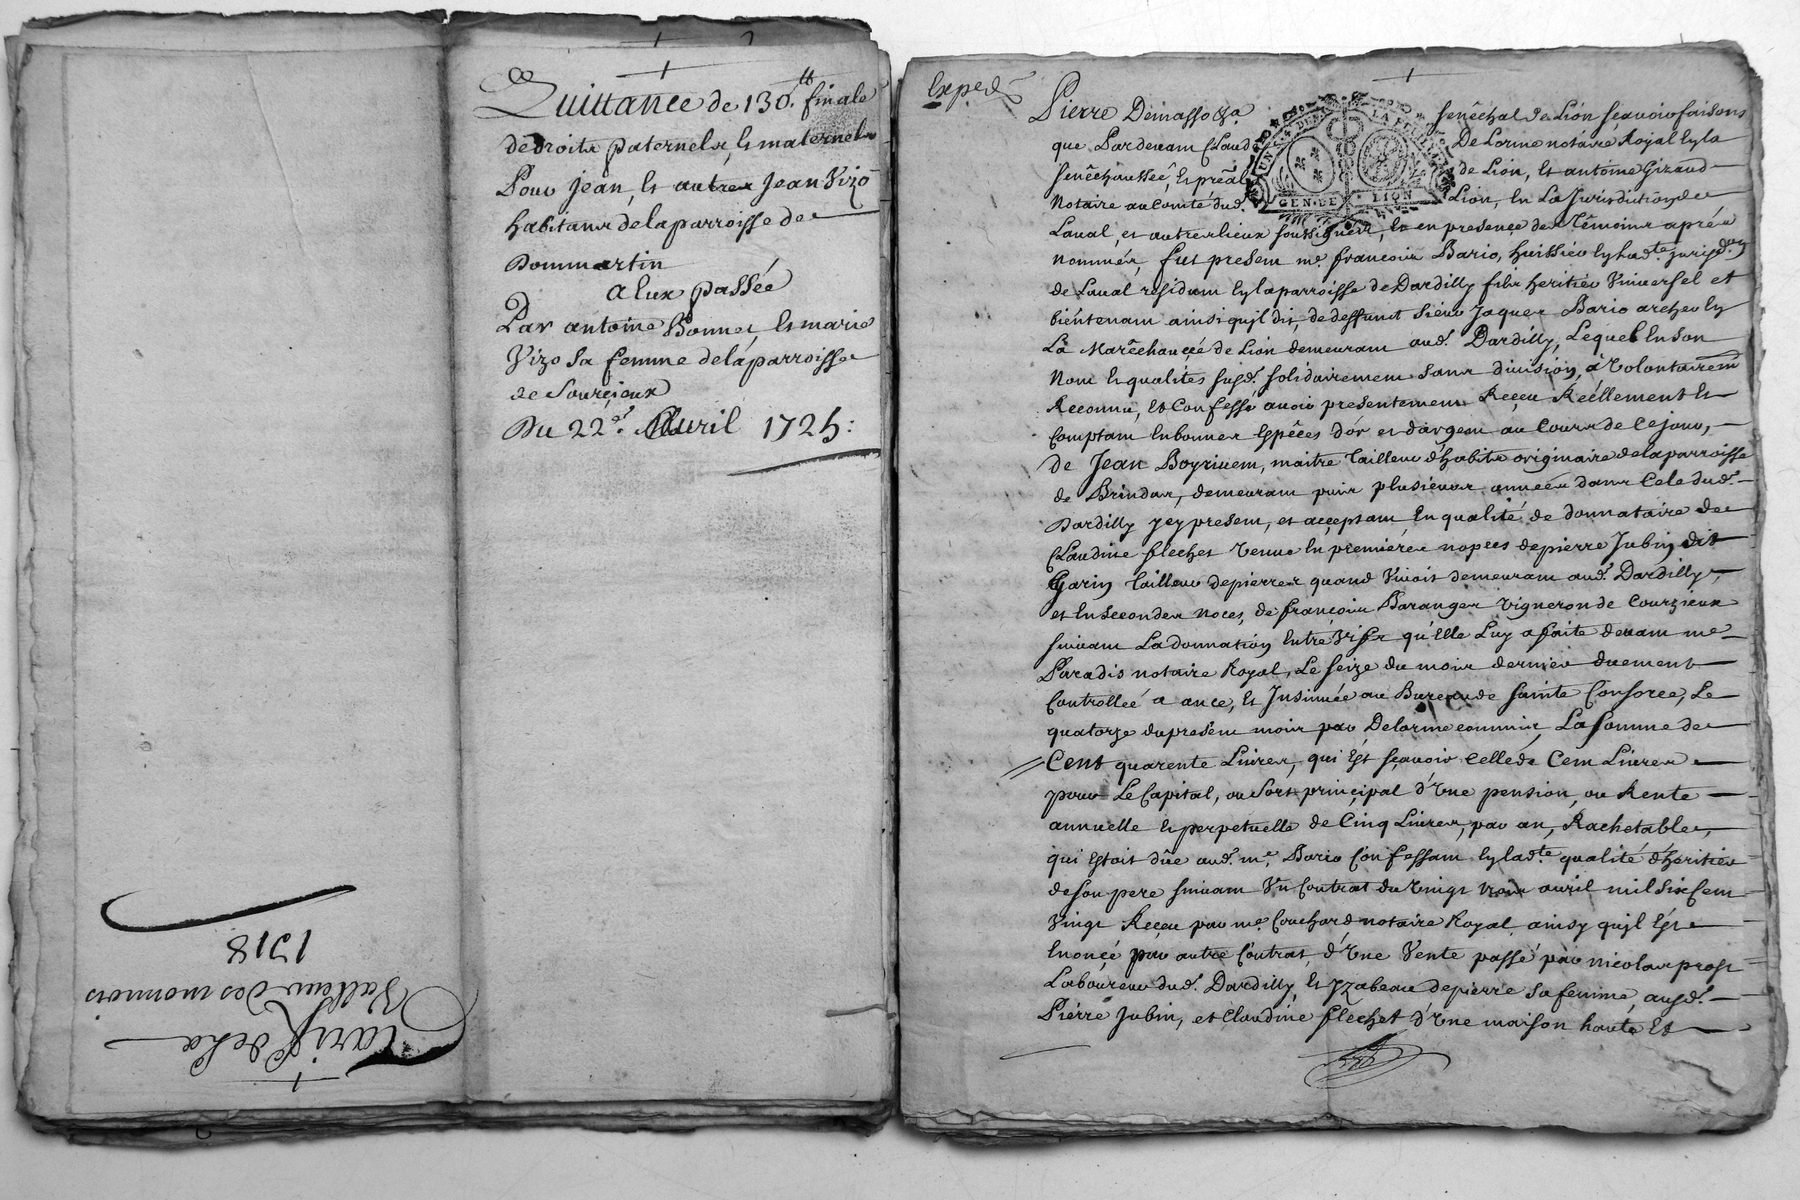 Quittance de 130.tt finale
de droits paternels, et maternels
Pour jean, et autres Jean Vizo
habitans de la parroisse de
Dommartin
a eux passée
Par antoine Bonnet, et marie
Vizo sa femme de la parroisse
de Sourcieux
Du 22e. Auril 1725:
Tarif de la
Valleur des monnois
1718
Expedé
Pierre Demasso &a senêchal de Lion scauoir faisons
que Pardeuant Claude De Lorme notaire Royal en la
senêchaussée, et préal de Lion, et antoine Giraud
Notaire au Comté dud. Lion, en La Jurisdiction de
GEN·DE LION
Laual, et autres lieux soussignez, et en presence des Têmoins aprés
nommés, fut present me. françois Bario, huissier en lad.te jurisd.on
de Laual residant en la parroisse de Dardilly fils heritier Vniuersel et
bientenant ainsi qu'il dit, de deffunt Sieur Jaques Bario archer en
La Marêchaucée de Lion demeurant aud. Dardilly, Lequel En son
Nom et qualités susd. solidairement sans diuision, à Volontairemt
Reconnu, et Confessé auoir presentement Reçeu Réellement et
Comptant En bonnes Espêces d'or et d'argent au Cours de Ce jour,
de Jean Boyriuent, maitre Tailleur d'habits originaire de la parroisse
de Brindas, demeurant puis plusieurs années dans Cele dud.
Dardilly jcy present, et acceptant En qualité de donnataire de
Claudine flechet Venue En premieres nopces de pierre Jubin dit
Garin Tailleur de pierres quand Viuoit demeurant aud. Dardilly,
et En Secondes noces, de françois Baranger Vigneron de Courzieux
suiuant La donnation Entre Vifs qu'Elle Luy a faite deuant me
Paradis notaire Royal, Le seize du mois dernier duement
Controllée a ance, et Insinuée au Bureau de Sainte Consorce, Le
quatorze du present mois par Delorme commis, La somme de
Cent quarente Liures, qui Est sçauoir Celle de Cent Liures
pour Le Capital, ou Sort principal d'Vne pension, ou Rente
annuelle et perpetuelle de Cinq Liures, par an, Rachetable,
qui Estoit dûe aud. me. Bario Confessant en lad.te qualité d'héritier
de son pere suiuant Vn Contrat du Vingt trois auril mil six Cent
Vingt Reçeu par me. Couchard notaire Royal, ainsy qu'jl Est
Enoncé par autre Contrat, d'Vne Vente passé par nicolas prost
Laboureur dud. Dardilly, et yzabeau depierre sa femme, ausd.
Pierre Jubin, et Claudine flechet d'Vne maison haute Et